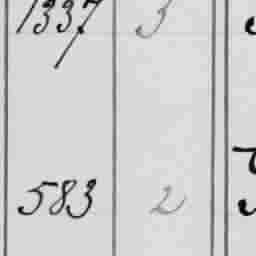 1337 3
583 2